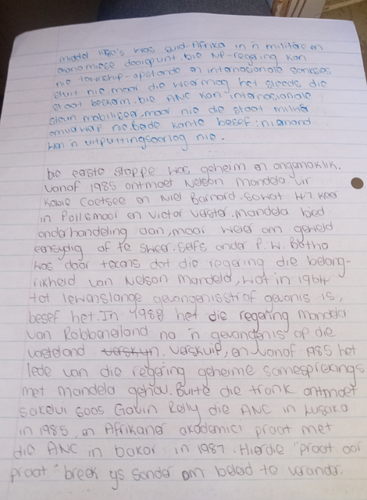 middel 1980's was Suid-Afrika in 'n militêre en
ekonomiese dooipunt. die NP-regering kon
nie township-opstande en internasionale sanksies
stuit nie maar die weermag het steeds die
staat beskerm. die ANC kon internasionale
steun mobiliseer, maar nie die staat militêr
omverwerp nie. beide kante besef: niemand
kan 'n uitputtingsoorlog nie.
Die eerste stappe was geheim en ongemaklik.
Vanaf 1985 ontmoet Nelson Mandela vir
Kobie Coetsee en Niel Barnard sowat 47 keer
in Pollsmoor en Victor Verster. Mandela bied
onderhandeling aan, maar weier om geweld
eensydig af te sweer. Selfs onder P.W. Botha
was daar tekens dat die regering die belang-
rikheid van Nelson Mandela, wat in 1964
tot lewenslange gevangenisstraf gevonis is,
besef het. In 1988 het die regering Mandela
van Robbeneiland na 'n gevangenis op die
vasteland verskuif, en vanaf 1985 het
lede van die regering geheime samesprekings
met Mandela gehou. Buite die tronk ontmoet
sakelui soos Gavin Relly die ANC in Lusaka
in 1985 en Afrikaner akademici praat met
die ANC in Dakar in 1987. Hierdie "praat oor
praat" breek ys sonder om beleid te verander.